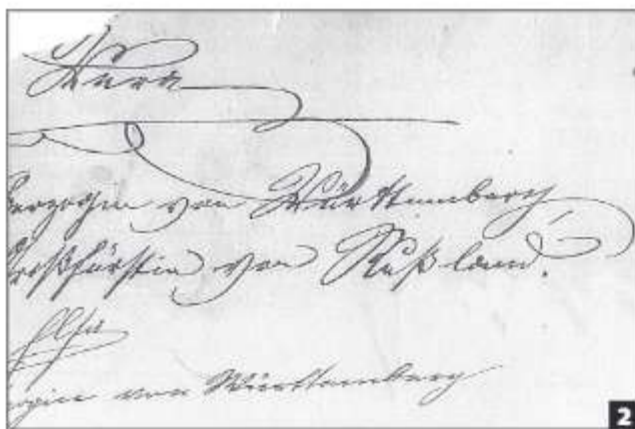 Wera
Herzogin von Württemberg
Großfürstin von Rußland.
Elsa
ogin von Württemberg
2